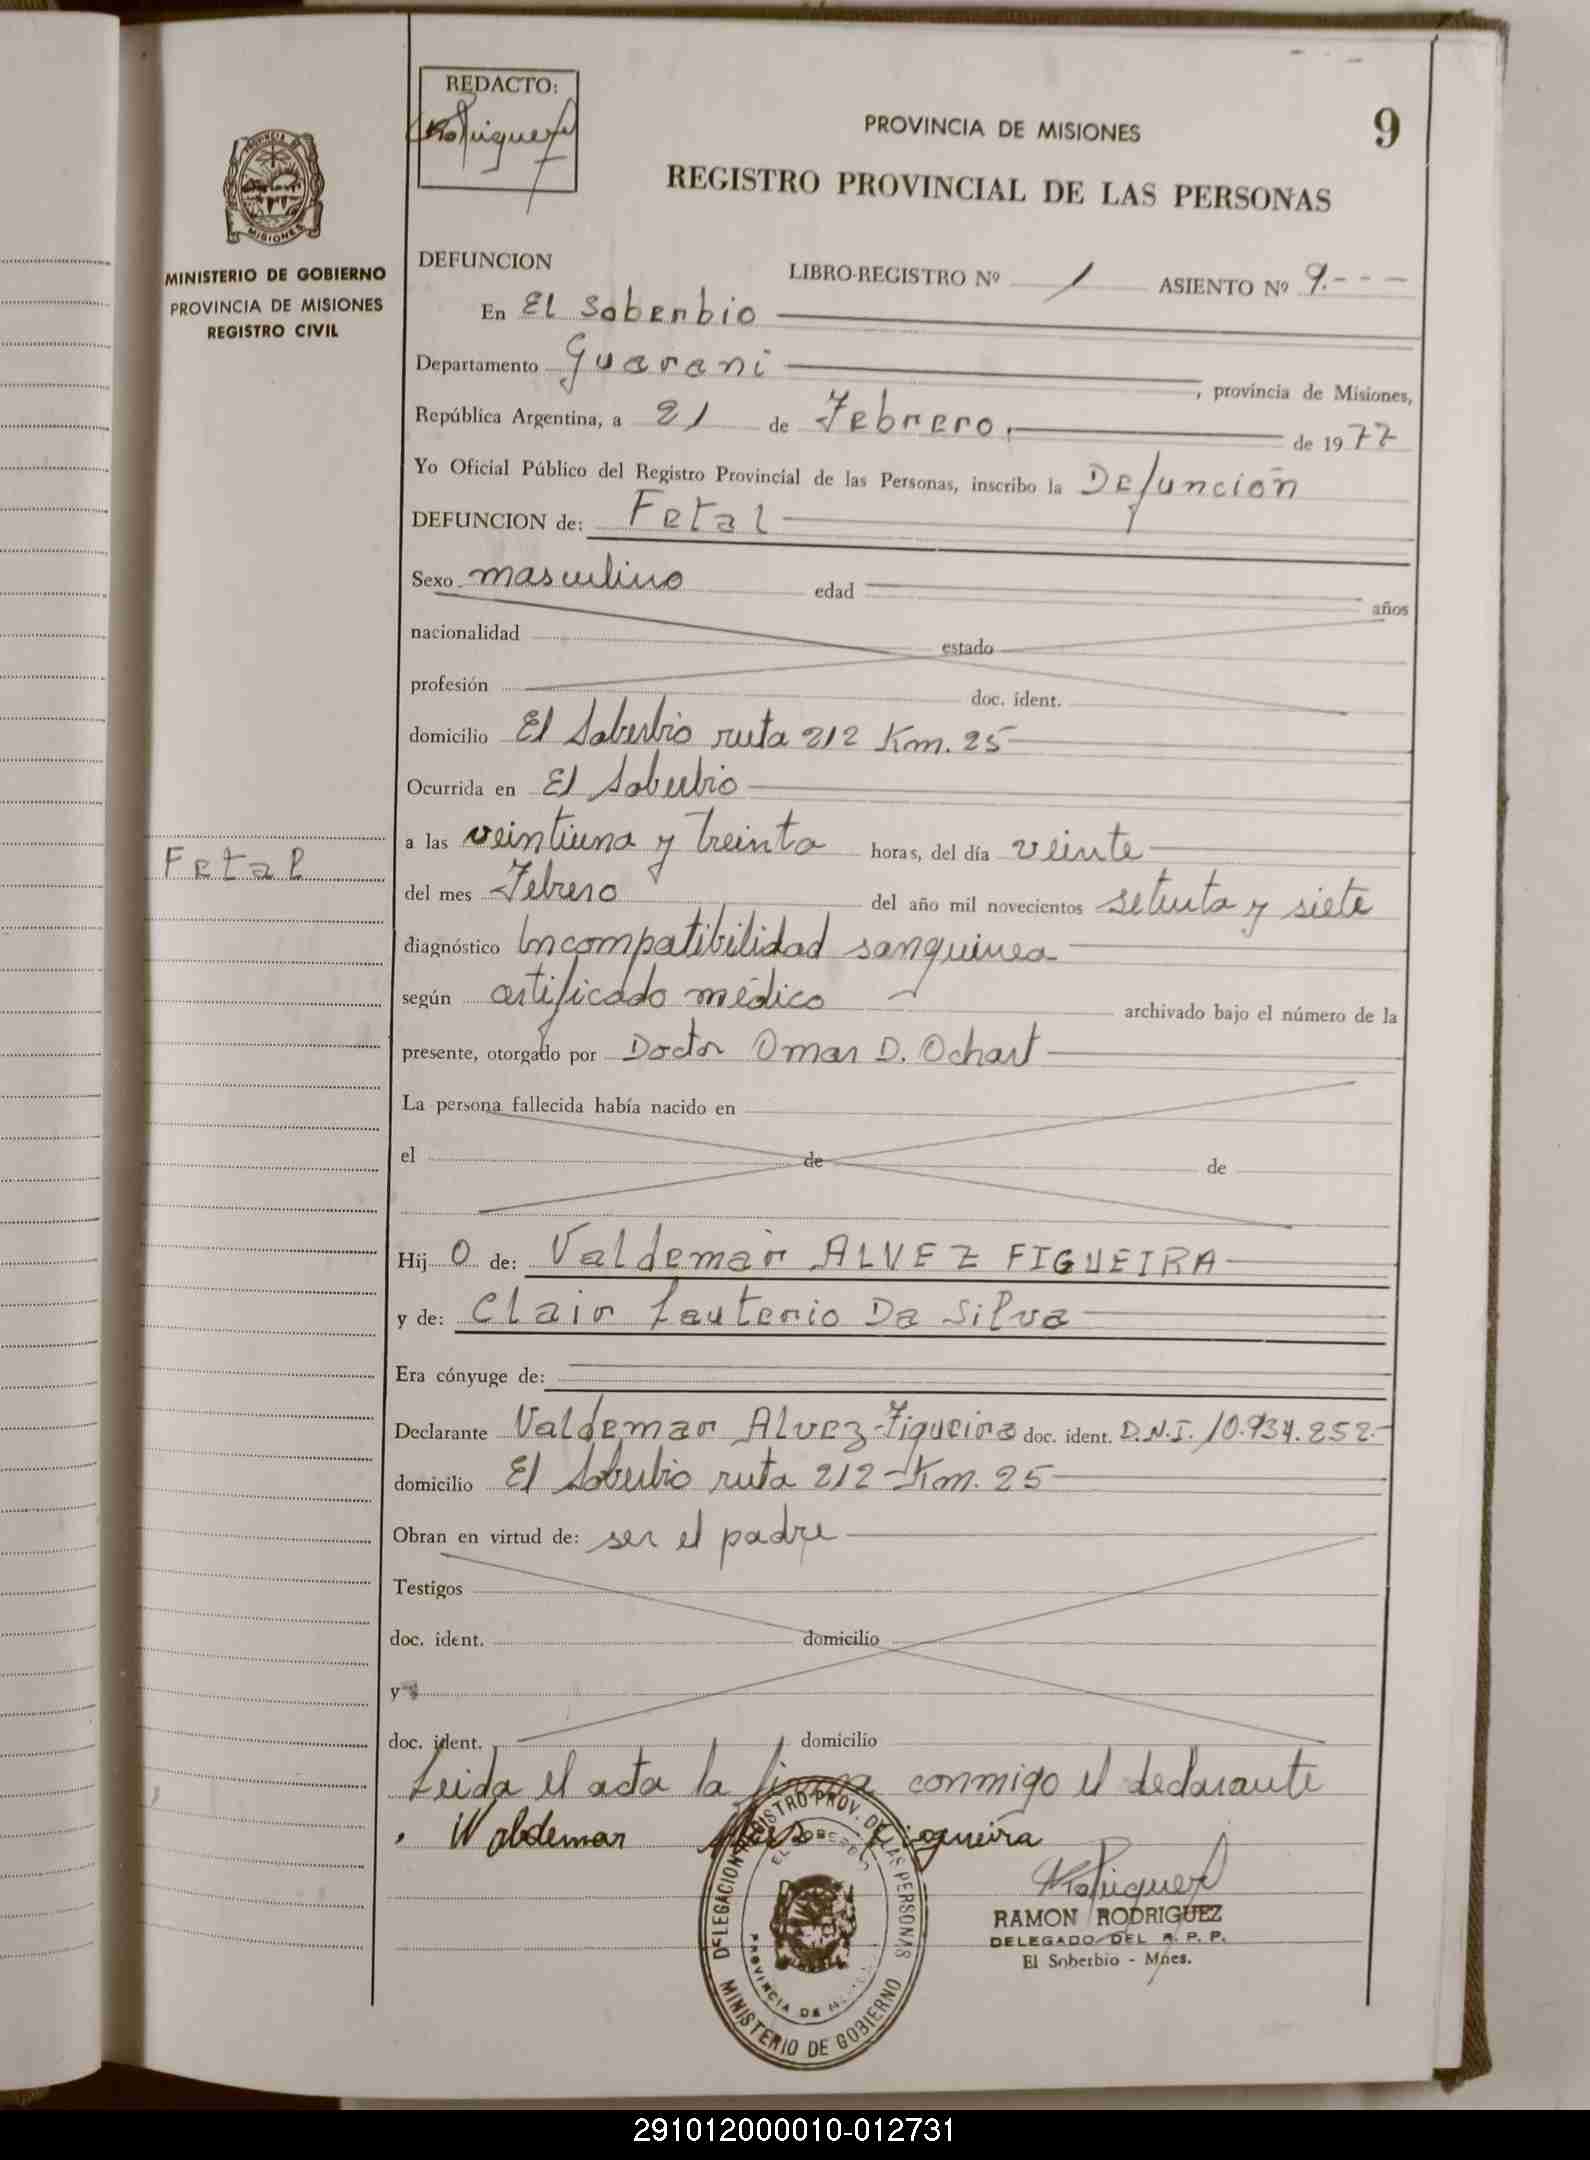 REDACTO:
Rodriguez
PROVINCIA DE MISIONES
9
REGISTRO PROVINCIAL DE LAS PERSONAS
PROVINCIA DE
MISIONES
MINISTERIO DE GOBIERNO
PROVINCIA DE MISIONES
REGISTRO CIVIL
DEFUNCION LIBRO-REGISTRO Nº 1 ASIENTO Nº 9.---
En El Soberbio
Departamento Guarani , provincia de Misiones,
República Argentina, a 21 de Febrero. de 1977
Yo Oficial Público del Registro Provincial de las Personas, inscribo la Defunción
DEFUNCION de: Fetal
Sexo masculino edad años
nacionalidad estado
profesión doc. ident.
domicilio El Soberbio ruta 212 Km. 25
Ocurrida en El Soberbio
a las veintiuna y treinta horas, del día veinte
Fetal
del mes Febrero del año mil novecientos setenta y siete
diagnóstico Incompatibilidad sanguinea
según certificado médico archivado bajo el número de la
presente, otorgado por Doctor Omar D. Ochart
La persona fallecida había nacido en
el de de
Hij o de: Valdemar ALVEZ FIGUEIRA
y de: Clair Lauterio Da Silva
Era cónyuge de:
Declarante Valdemar Alvez Figueira doc. ident. D.N.I. 10.934.252.-
domicilio El Soberbio ruta 212 - Km. 25
Obran en virtud de: ser el padre
Testigos
doc. ident. domicilio
y
doc. ident. domicilio
Leida el acta la firma conmigo el declarante
Waldemar Figueira
DELEGACION REGISTRO PROV. DE LAS PERSONAS
EL SOBERBIO
PROVINCIA DE
MINISTERIO DE GOBIERNO
Rodriguez
RAMON RODRIGUEZ
DELEGADO DEL R. P. P.
El Soberbio - Mnes.
291012000010-012731